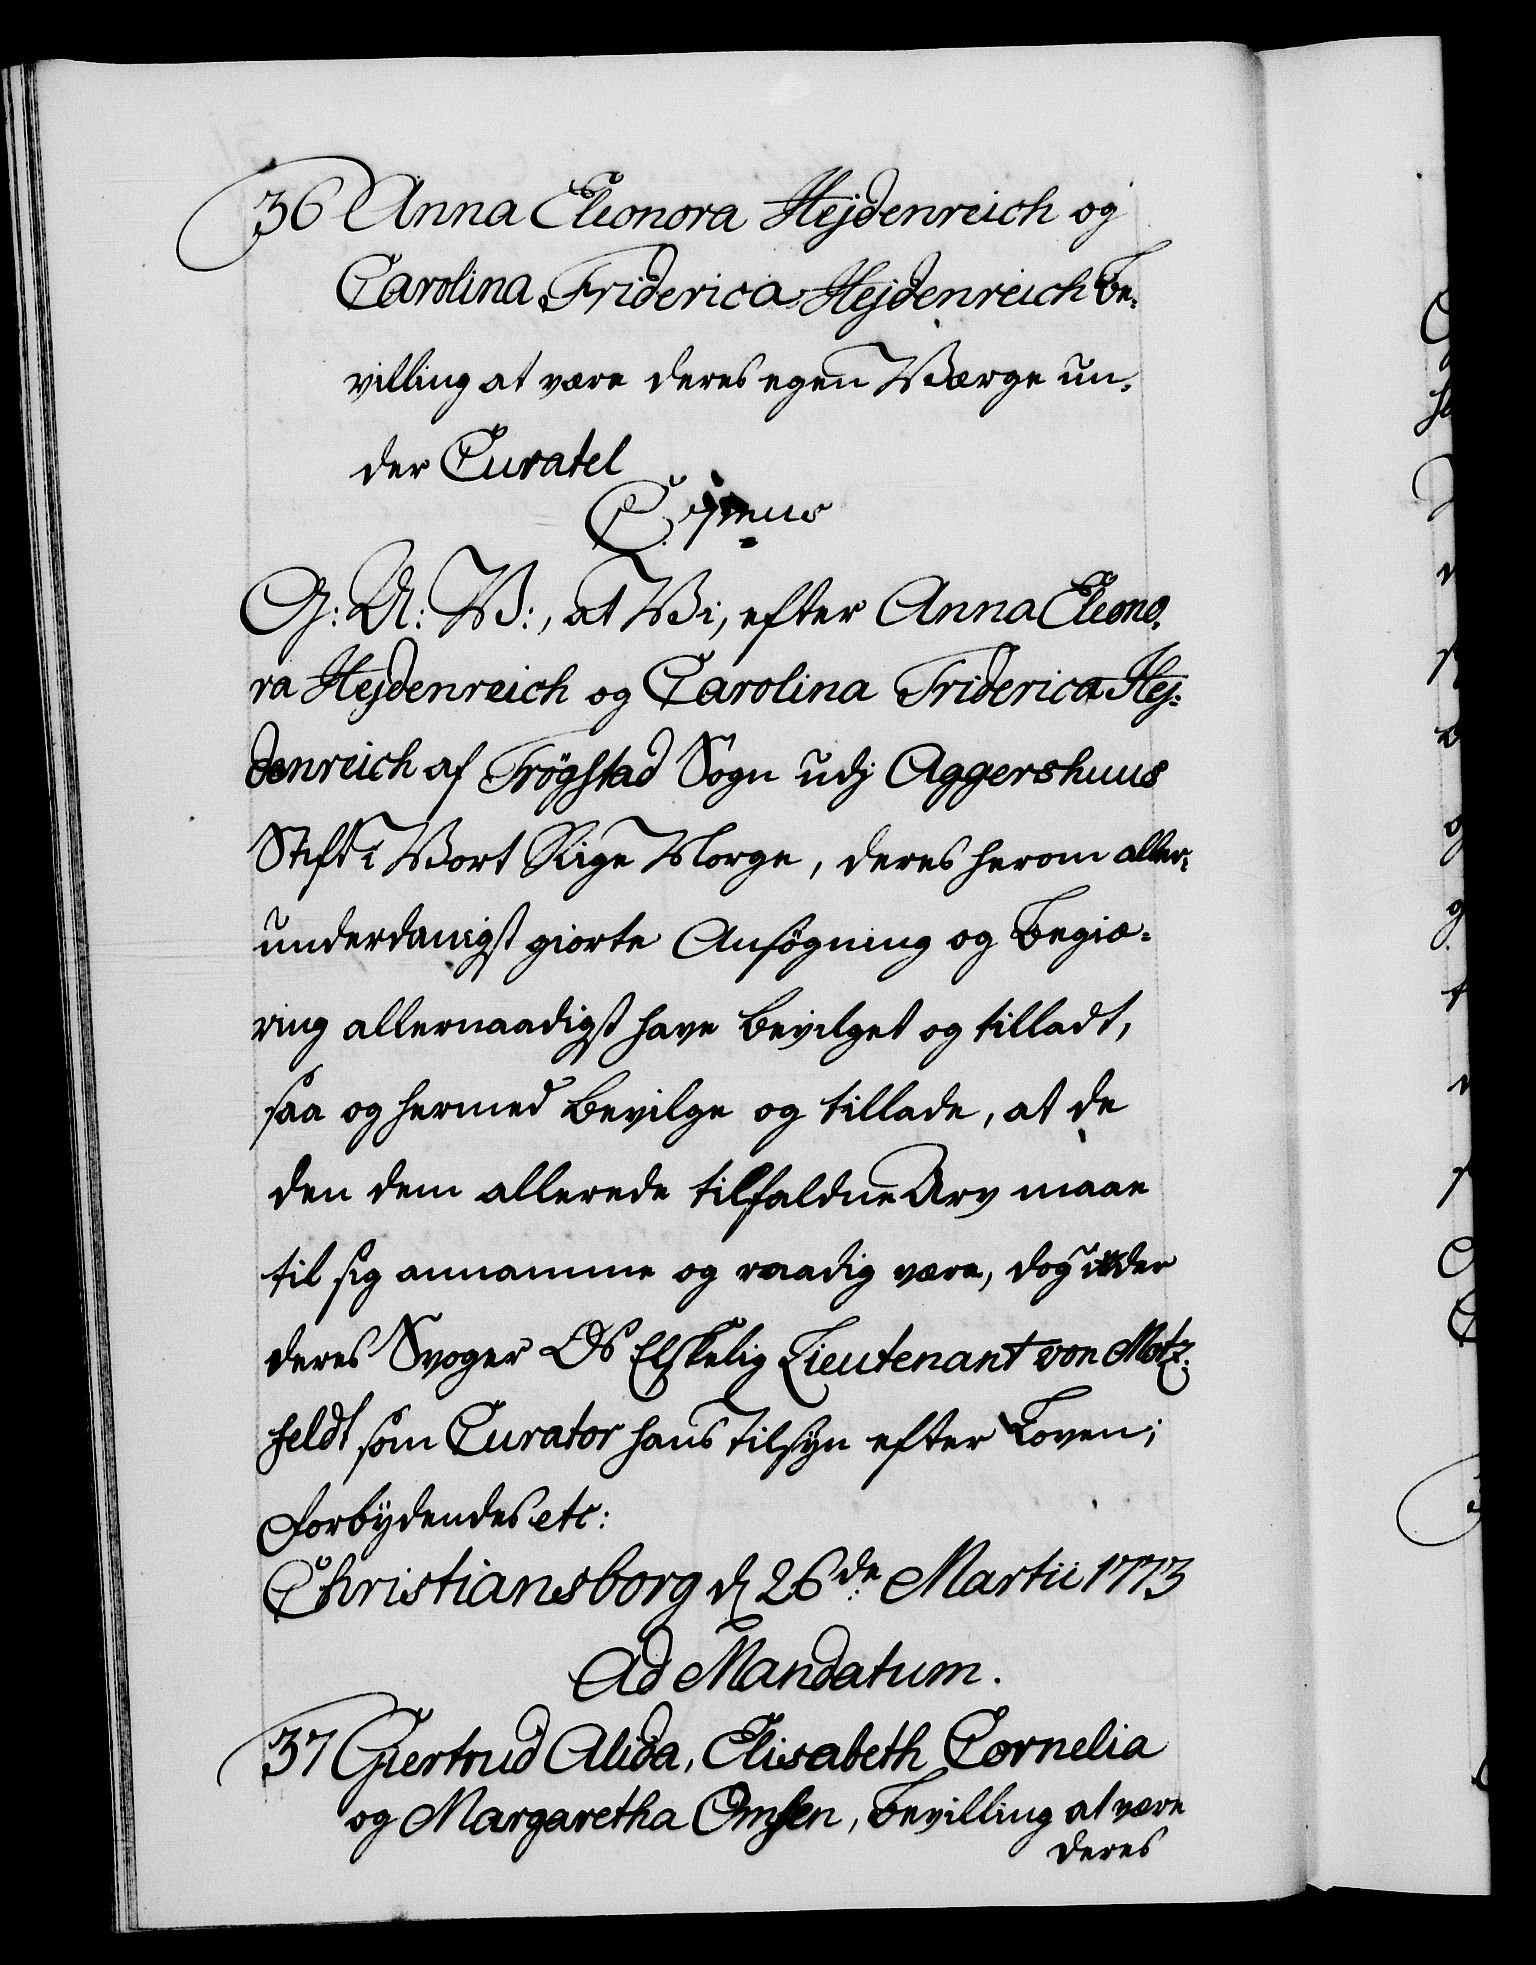 36 Anna Eleonora Hejdenreich og
Carolina Friderica Hejdenreich Be-
villing at være deres egen Værge un-
der Curatel
C: 7mus
G: A: V:, at Vi, efter Anna Eleono-
ra Hejdenreich og Carolina Friderica Hej-
denreich af Trögstad Sogn udj Aggershuus
Stift i Vort Rige Norge, deres herom aller-
underdanigst giorte Ansøgning og Begiæ-
ring allernaadigst have bevilget og tilladt,
saa og hermed bevilge og tillade, at de
den dem allerede tilfaldne Arv maae
til sig annamme og raadig være, dog under
deres Svoger Os Elskelig Lieutenant von Motz-
feldt som Curator hans Tilsyn efter Loven;
Forbydendes etc:
Christiansborg d 26de Martii 1773
Ad Mandatum.
37 Giertrud Alida, Elisabeth Cornelia
og Margaretha Omsen, Bevilling at være
deres